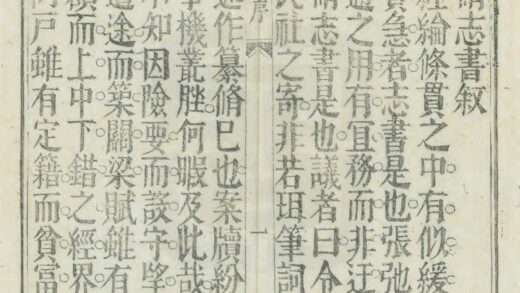 志書叙
經綸條貫之中有似緩
急者志書是也張弛
適之用有宜務而非迂
志書是也議者曰令
民社之寄非若珥筆詞
序
一
述作纂脩已也案牘紛
事機叢脞何暇及此哉
知因險要而設守望
道途而築關梁賦雖有
額而上中下錯之經界
戶雖有定籍而貧富